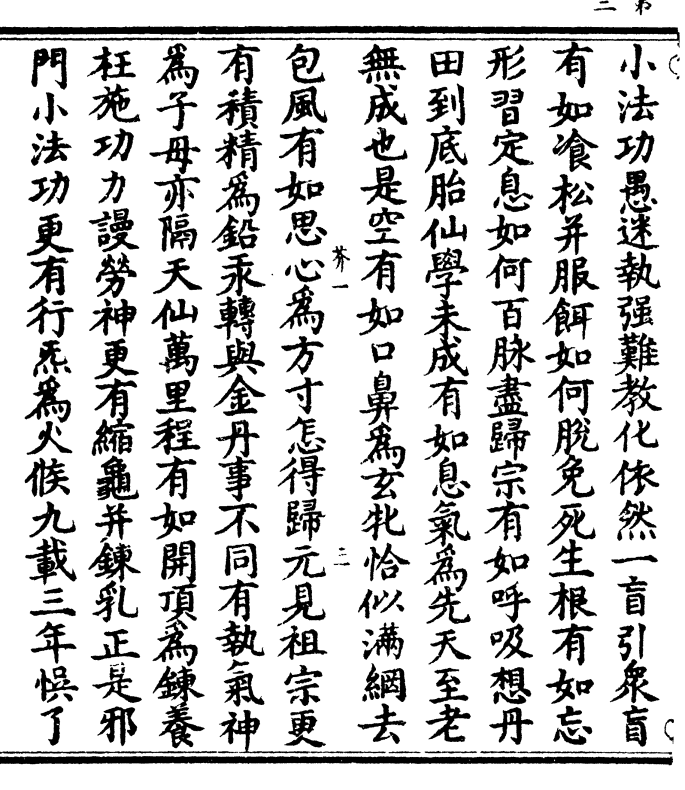 小法功愚迷執强難教化依然一盲引衆盲
有如飡松并服餌如何脫免死生根有如忘
形習定息如何百脉盡歸宗有如呼吸想丹
田到底胎仙學未成有如息氣爲先天至老
無成也是空有如口鼻爲玄牝恰似滿網去
包風有如思心爲方寸怎得歸元見祖宗更
有積精爲鉛汞轉與金丹事不同有執氣神
爲子母亦隔天仙萬里程有如開頂爲鍊養
枉施功力謾勞神更有縮龜并鍊乳正是邪
門小法功更有行炁爲火候九載三年悞了